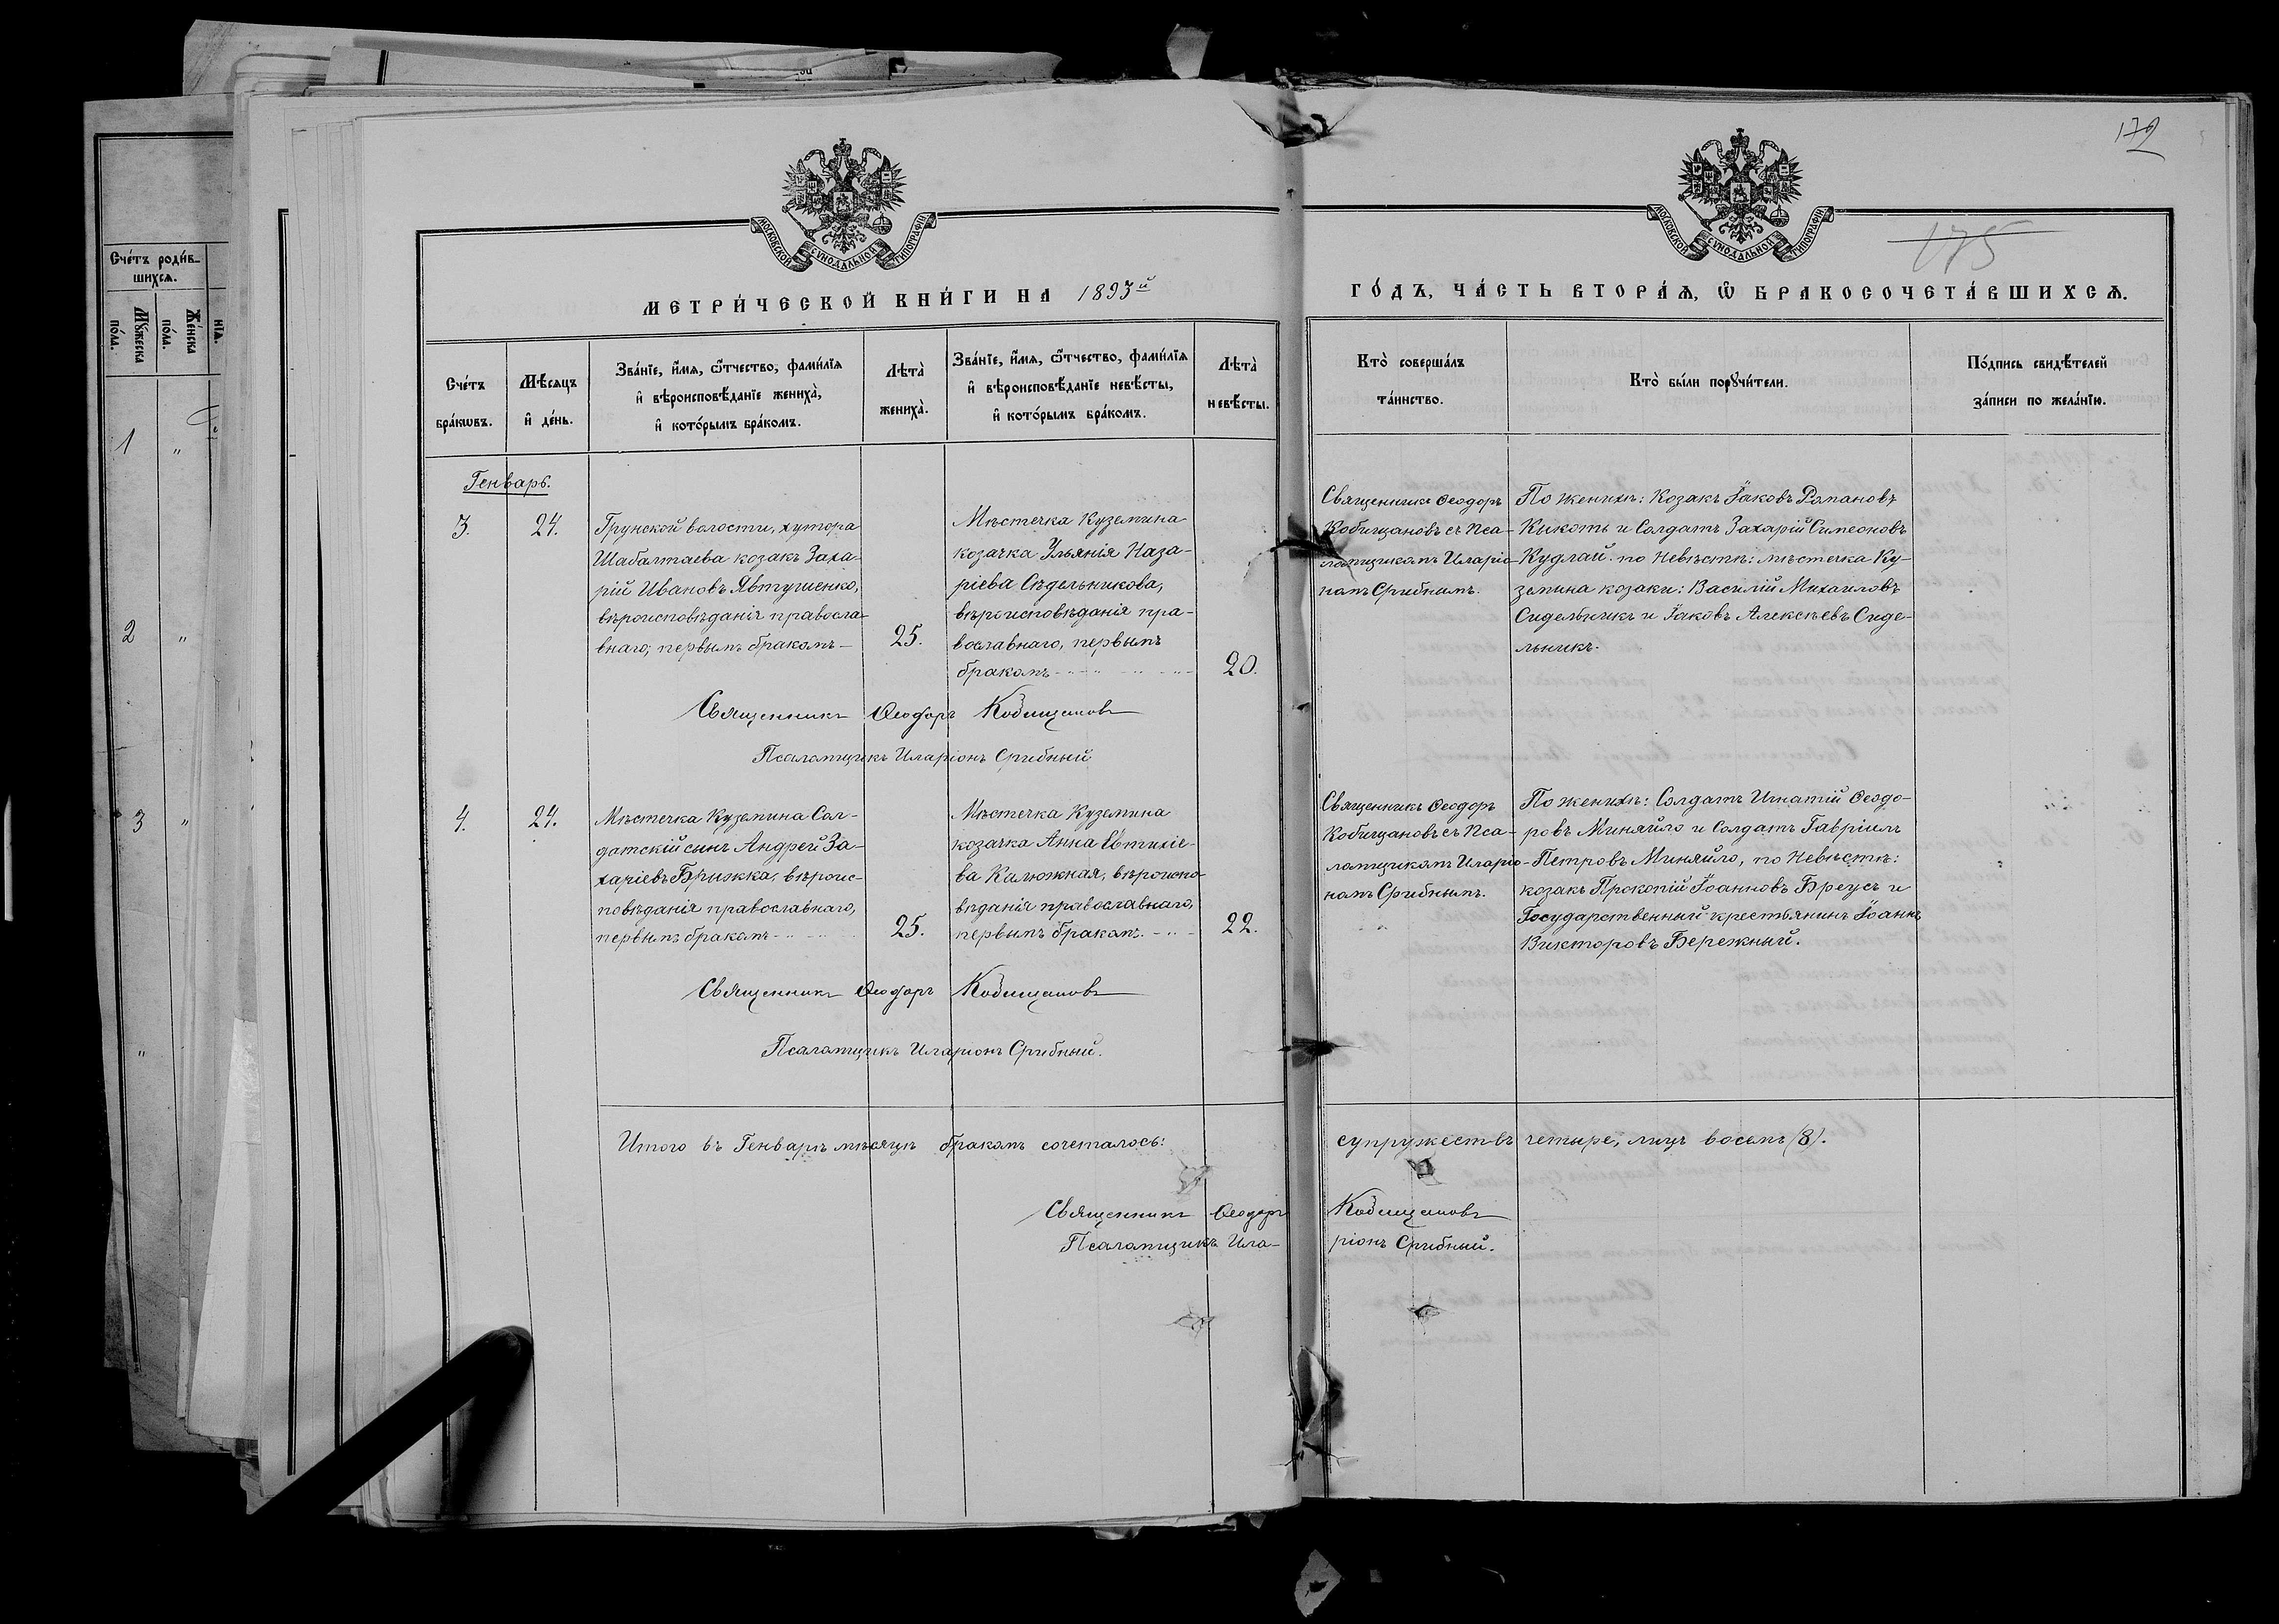 172
175
МОСКОВСКОЙ СѴНОДАЛЬНОЙ ТИПОГРАФІИ
МОСКОВСКОЙ СѴНОДАЛЬНОЙ ТИПОГРАФІИ
МЕТРИ́ЧЕСКОЙ КНИ́ГИ НА 1893й
ГО́ДЪ, ЧА́СТЬ ВТОРА́Я, Ѿ БРАКОСОЧЕТА́ВШИХСЯ.
Сче́тъ роди́в-
шихся.
Мꙋ́жеска
по́ла.
Же́нска
по́ла.
нїя.
1 "
2 "
3 "
"
Сче́тъ
бра́кωвъ.
Мѣ́сяцъ
и҆ де́нь.
Зва́нїе, и҆́мя, ѻ҆́тчество, фами́лїя
и҆ вѣроисповѣ́данїе жениха̀,
и҆ кото́рымъ бра́комъ.
Лѣта̀
жениха̀.
Зва́нїе, и҆́мя, ѻ҆́тчество, фами́лїя
и҆ вѣроисповѣ́данїе невѣ́сты,
и҆ кото́рымъ бра́комъ.
Лѣта̀
невѣ́сты.
Кто̀ соверша́лъ
та́инство.
Кто̀ бы́ли порꙋчи́тели.
По́дпись свидѣ́телей
за́писи по жела́нїю.
Генварь.
3.
24.
Грунской волости, хутора
Шабалтаева козакъ Заха-
рій Ивановъ Явтушенко,
вѣроисповѣданія правосла-
внаго, первымъ бракомъ
25.
Мѣстечка Куземина
козачка Ульянія Наза-
ріева Сѣдельникова,
вѣроисповѣданія пра-
вославнаго, первымъ
бракомъ
20.
Священникъ Ѳеодоръ
Кобищановъ съ Пса-
ломщикомъ Иларіо-
номъ Срибнымъ.
По женихѣ: Козакъ Іаковъ
Кикоть и Солдатъ Захарій Симеоновъ
Кудлай. по Невѣстѣ: мѣстечка Ку-
земина козаки: Василій Михаиловъ
Сидельникъ и Іаковъ Алексѣевъ Сиде-
льникъ.
Священникъ Ѳеодоръ Кобищановъ
Псаломщикъ Иларіонъ Срибный
4.
24.
Мѣстечка Куземина Сол-
датскій сынъ Андрей За-
харіевъ Брижка, вѣроис-
повѣданія православнаго,
первымъ бракомъ
25.
Мѣстечка Куземина
козачка Анна Евтихіе-
ва Калюжная, вѣроиспо-
вѣданія православнаго,
первымъ бракомъ.
22.
Священникъ Ѳеодоръ
Кобищановъ съ Пса-
ломщикомъ Иларіо-
номъ Срибнымъ.
По женихѣ: Солдатъ Игнатій Ѳеодо-
ровъ Миняйло и Солдатъ Гавріилъ
Петровъ Миняйло, по Невѣстѣ:
козакъ Прокопій Іоанновъ Бреусъ и
Государственный крестьянинъ Іоаннъ
Викторовъ Бережный.
Священникъ Ѳеодоръ Кобищановъ
Псаломщикъ Иларіонъ Срибный.
Итого въ Генварѣ мѣсяцѣ бракомъ сочеталось: супружествъ четыре, лицъ восемь (8).
Священникъ Ѳеодоръ Кобищановъ
Псаломщикъ Иларіонъ Срибный.